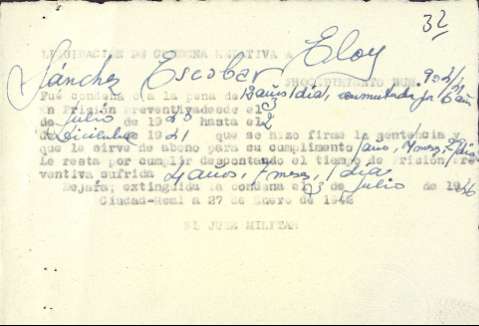 32
LIQUIDACION DE CONDENA RELATIVA A Eloy
Sánchez Escobar
PROCEDIMIENTO NUM.
Fué condenado a la pena de 12 años 1 día, conmutada por 6 años
En Prisión Preventiva desde el 3
de julio de 1940 hasta el 2
de Diciembre 1941 que se hizo firme la sentencia y
que le sirve de abono para su cumplimento 1 año,
Le resta por cumplir descontando el tiempo de Prisión Pre
ventiva sufrida 4 años, 7 meses, 1 día
Dejará extinguida la condena el 3 de julio de 1946
Ciudad-Real a 27 de Enero de 1942
EL JUEZ MILITAR